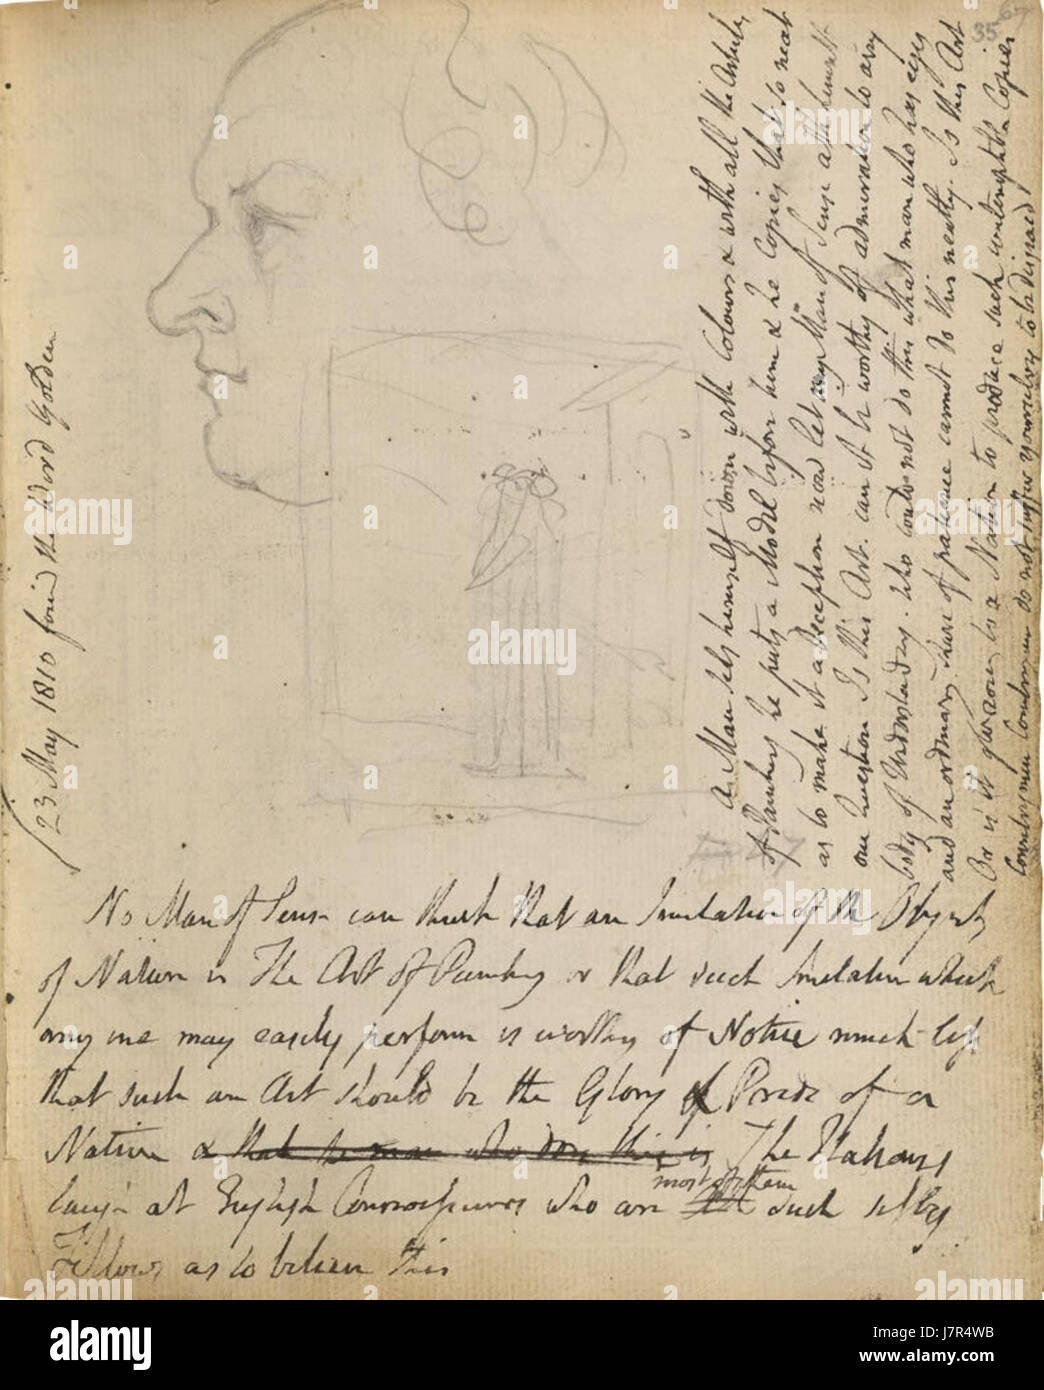 67
35
23 May 1810 found the Word Golden
A Man sets himself down with Colours & with all the Articles
of Painting he puts a Model before him & he Copies that so neat
as to make it a Deception now let any Man of Sense ask himself
one Question Is this Art. can it be worthy of admiration to any
body of Understanding. Who could not do this what man who has eyes
and an ordinary share of patience cannot do this neatly. Is this Art
Or is it glorious to a Nation to produce such contemptible Copies
Countrymen Countrymen do not suffer yourselves to be disgraced
No Man of Sense can think that an Imitation of the Objects
of Nature is The Art of Painting or that such Imitation which
any one may easily perform is worthy of Notice much less
that such an Art should be the Glory & Pride of a
Nation & that the man who does this is The Italians
most of them
laugh at English Connoisseurs who are such silly
Fellows as to believe this
alamy
alamy
Image ID: J7R4WB
www.alamy.com